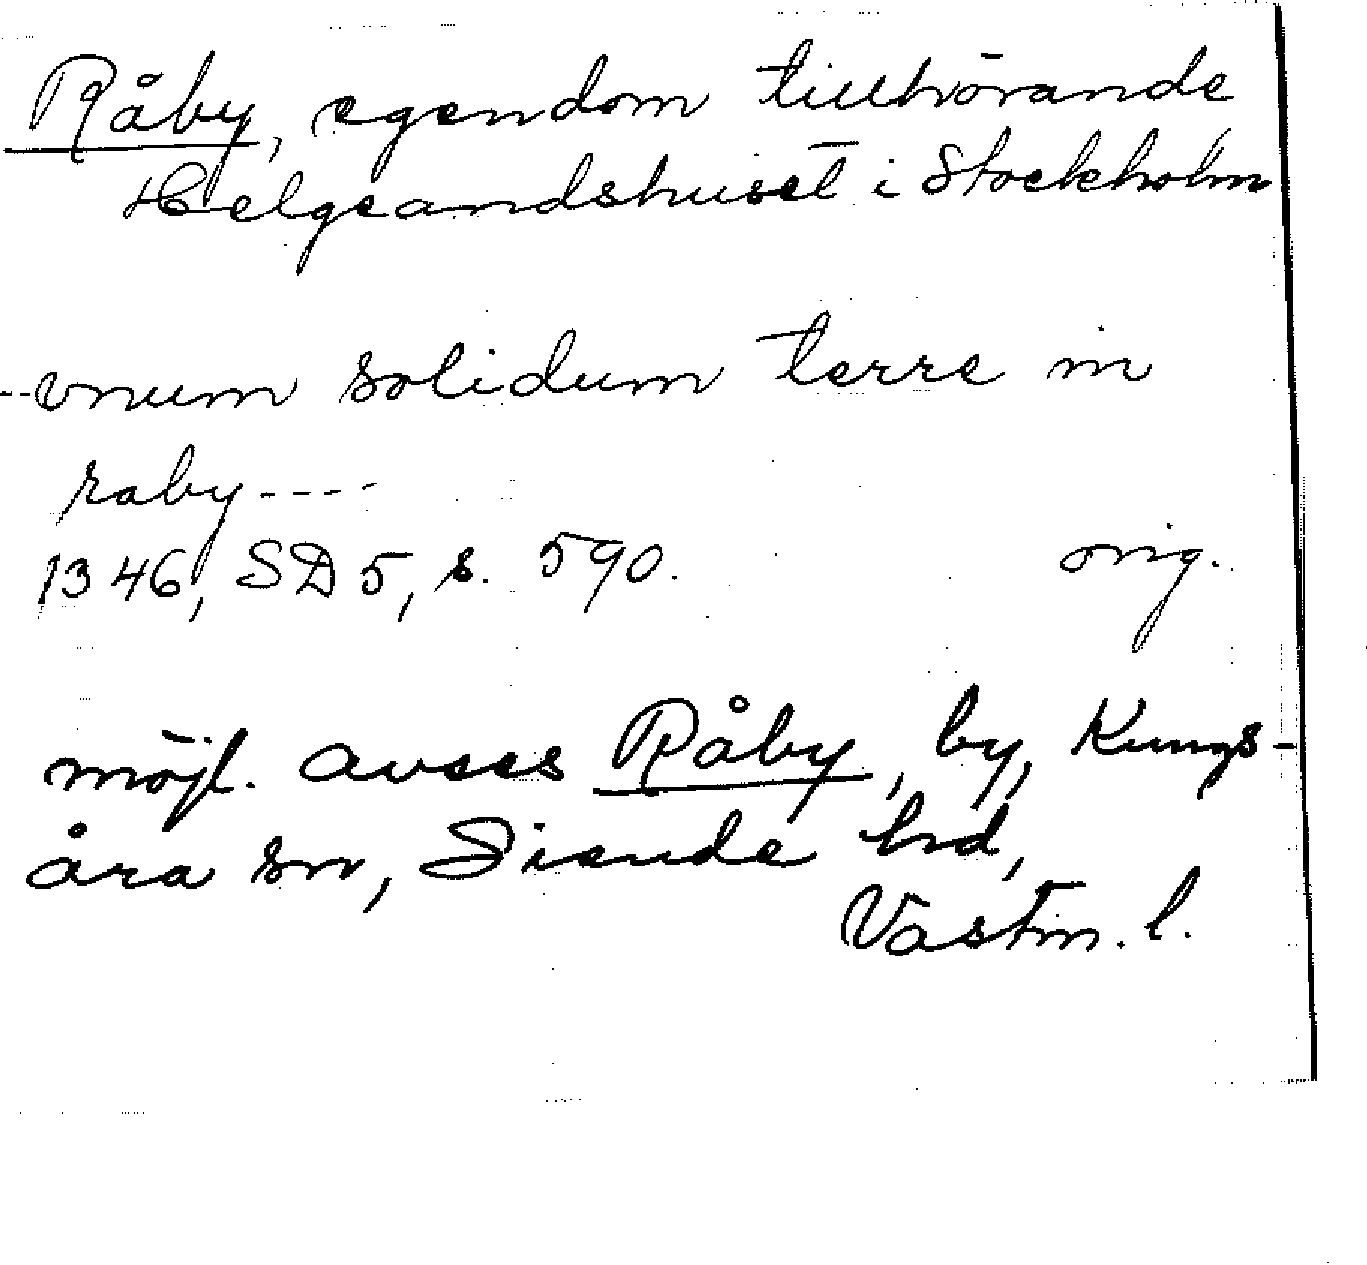 Råby, egendom tillhörande
Helgeandshuset i Stockholm
--vnum solidum terre in
raby----
1346, SD 5, s. 590. orig.
möjl. avses Råby, by, Kungs-
åra sn, Siende hd,
Västm. l.